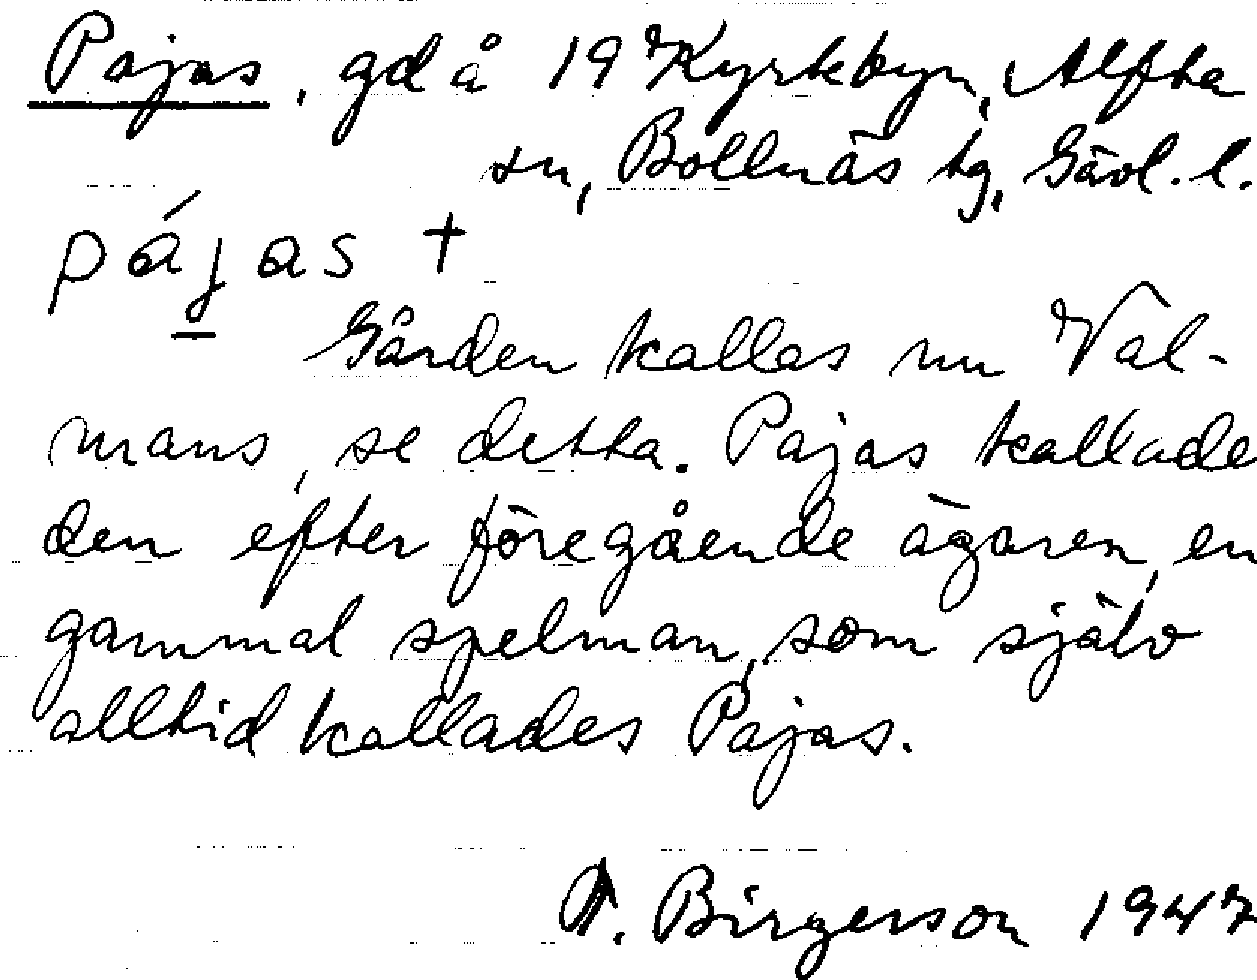 Pajas, gd å 19 Kyrkbyn, Alfta
sn, Bollnäs tg, Gävl. l.
páj̱as †
Gården kallas nu Val-
mans, se detta. Pajas kallade
den efter föregående ägaren, en
gammal spelman, som själv
alltid kallades Pajas.
A. Birgerson 1947